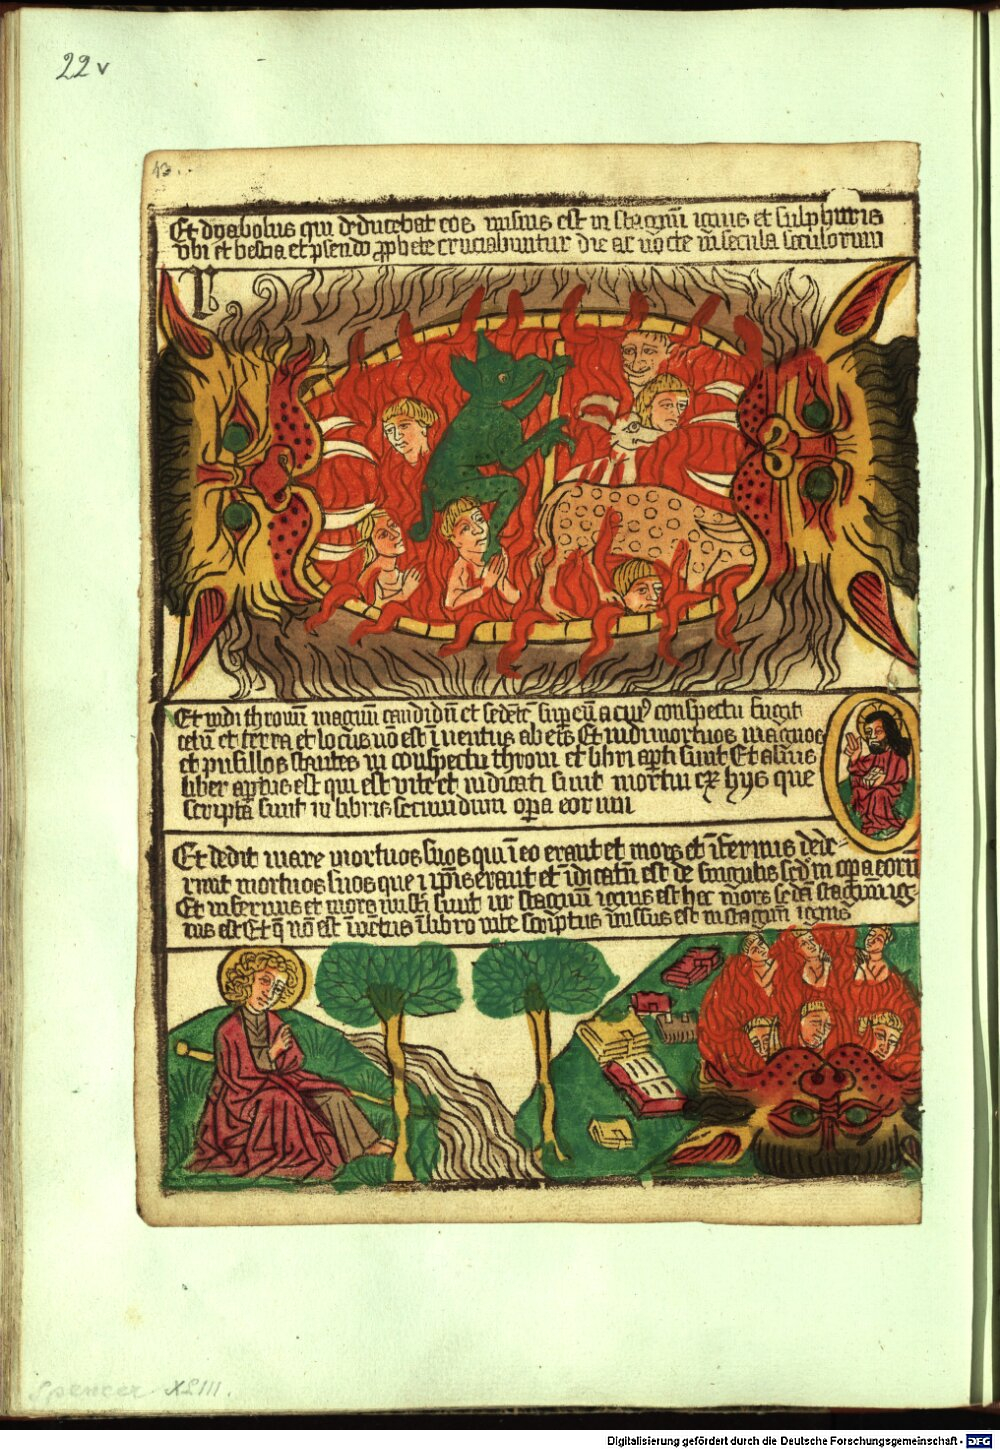 22v
13..
Et dyabolus qui deducebat eos missus est in stagnū ignis et sulphuris
vbi et bestia et psendo ꝓphete cruciabuntur die ac nocte in secula seculorum
Et vidi thronū magnū candidū et sedētē sup eū a cuiꝰ conspectu fugit
celū et terra et locus nō est inuentus ab eis Et uidi mortuos magnos
et pusillos stantes in conspectu throni et libri apti sunt Et alius
liber aptus est qui est vite et iudicati sunt mortui ex hys que
scripta sunt in libris secundum opa eorum
Et dedit mare mortuos suos qui ī eo erant et mors et īfernus dede-
runt mortuos suos que ī ipīs erant et īdicatū est de singulis scdm opa eorū
Et infernus et mors missi sunt in stagnū ignis est hec mors scda stagnū ig-
nis est Et q nō est īuētus ī libro vite scriptus missus est in stagnū ignis
Spencer XLIII.
Digitalisierung gefördert durch die Deutsche Forschungsgemeinschaft - DFG